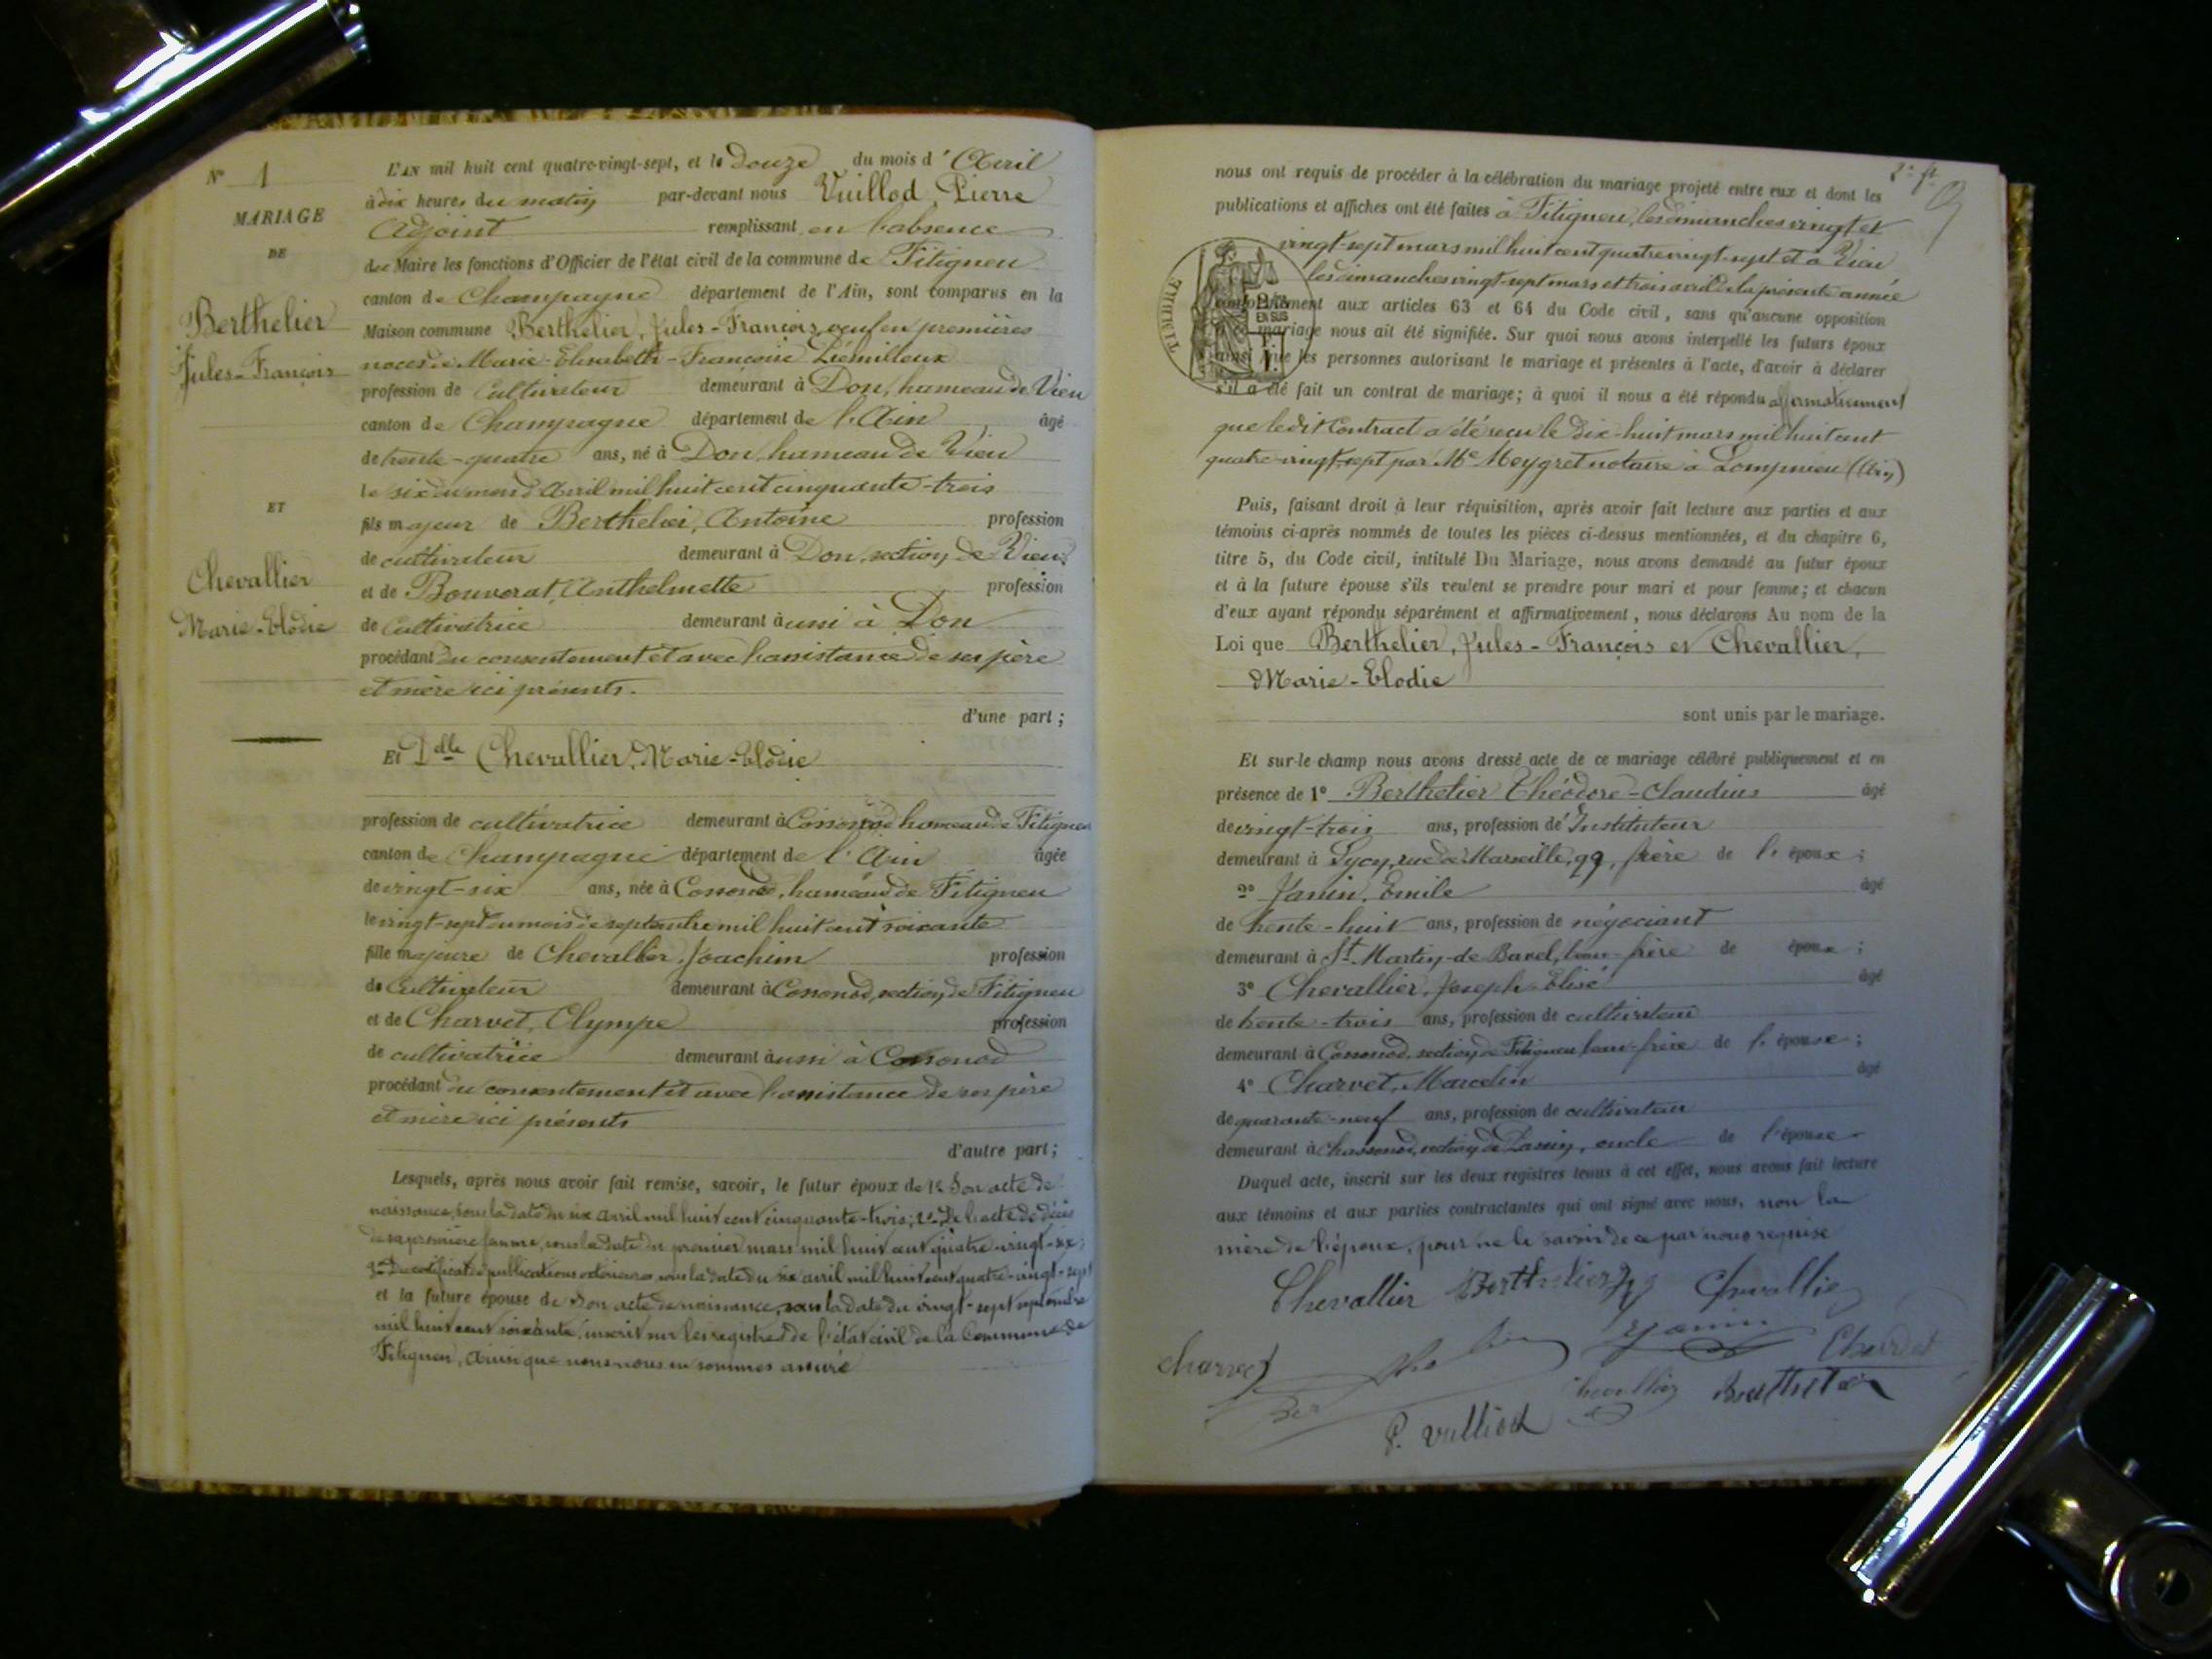 N° 1
MARIAGE
DE
Berthelier
Jules-François
ET
Chevallier
Marie-Elodie
L'AN mil huit cent quatre-vingt-sept, et le Douze du mois d'Avril
à dix heures du matin par-devant nous Vuillod, Pierre
Adjoint remplissant en l'absence
du Maire les fonctions d'Officier de l'état civil de la commune de Fitignieu
canton de Champagne département de l'Ain, sont comparus en la
Maison commune Berthelier, Jules-François, veuf en premières
noces de Marie-Elisabeth-Françoise
profession de Cultivateur demeurant à Don, hameau de Vieu
canton de Champagne département de l'Ain âgé
de trente-quatre ans, né à Don, hameau de Vieu
le six du mois d'Avril mil huit cent cinquante-trois
fils majeur de Berthelier, Antoine profession
de cultivateur demeurant à Don, section de Vieu
et de Bouvorat, Anthelmette profession
de Cultivatrice demeurant aussi à Don
procédant du consentement et avec l'assistance de ses père
et mère ici présents.
d'une part ;
Et Dlle Chevallier, Marie-Elodie
profession de cultivatrice demeurant à Cossonod hameau de Fitignieu
canton de Champagne département de l'Ain âgée
de vingt-six ans, née à Cossonod, hameau de Fitignieu
le vingt-sept du mois de septembre mil huit cent soixante
fille majeure de Chevallier, Joachim profession
de Cultivateur demeurant à Cossonod, section de Fitignieu
et de Charvet, Olympe profession
de cultivatrice demeurant aussi à Cossonod
procédant du consentement et avec l'assistance de ses père
et mère ici présents
d'autre part ;
Lesquels, après nous avoir fait remise, savoir, le futur époux de 1° Son acte de
naissance, sous la date du six avril mil huit cent cinquante-trois; 2° De l'acte de décès
de sa première femme, sous la date du premier mars mil huit cent quatre-vingt-six;
3° Du certificat de publications extérieures sous la date du six avril mil huit cent quatre-vingt-sept
et la future épouse de Son acte de naissance, sous la date du vingt-sept septembre
mil huit cent soixante, inscrit sur les registres de l'état civil de la Commune de
Fitignieu, ainsi que nous nous en sommes assuré
2e ft
nous ont requis de procéder à la célébration du mariage projeté entre eux et dont les
publications et affiches ont été faites à Fitignieu, les dimanches vingt et
vingt-sept mars mil huit cent quatre vingt-sept et à Vieu
les dimanches vingt-sept mars et trois avril de la présente année
TIMBRE
EN SUS
conformément aux articles 63 et 64 du Code civil, sans qu'aucune opposition
mariage nous ait été signifiée. Sur quoi nous avons interpellé les futurs époux
ainsi que les personnes autorisant le mariage et présentes à l'acte, d'avoir à déclarer
s'il a été fait un contrat de mariage; à quoi il nous a été répondu affirmativement
que le dit Contract a été reçu le Dix-huit mars mil huit cent
quatre-vingt-sept par Me Meygret notaire à Lompnieu (Ain)
Puis, faisant droit à leur réquisition, après avoir fait lecture aux parties et aux
témoins ci-après nommés de toutes les pièces ci-dessus mentionnées, et du chapitre 6,
titre 5, du Code civil, intitulé Du Mariage, nous avons demandé au futur époux
et à la future épouse s'ils veulent se prendre pour mari et pour femme; et chacun
d'eux ayant répondu séparément et affirmativement, nous déclarons Au nom de la
Loi que Berthelier, Jules-François et Chevallier,
Marie-Elodie
sont unis par le mariage.
Et sur-le champ nous avons dressé acte de ce mariage célébré publiquement et en
présence de 1° Berthelier Théodore-Claudius âgé
de vingt-trois ans, profession d'Instituteur
demeurant à rue de Marseille, 99, frère de l'époux ;
2° Janin, Emile âgé
de trente-huit ans, profession de négociant
demeurant à St Martin-de-Bavel, beau-frère de époux ;
3° Chevallier, Joseph-Elisé âgé
de trente-trois ans, profession de cultivateur
demeurant à Cossonod, section de Fitignieu beau-frère de l'épouse ;
4° Charvet, Marcelin âgé
de quarante-neuf ans, profession de cultivateur
demeurant à section de oncle de l'épouse
Duquel acte, inscrit sur les deux registres tenus à cet effet, nous avons fait lecture
aux témoins et aux parties contractantes qui ont signé avec nous, non la
mère de l'époux, pour ne le savoir de ce par nous requise
Chevallier Berthelier Chevallier
Charvet Janin
P. Vuillod Chevallier Berthelier